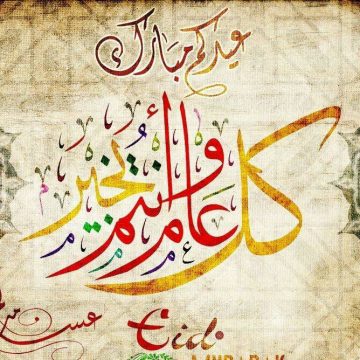 عيدكم مبارك
كل عام وأنتم بخير
Eid